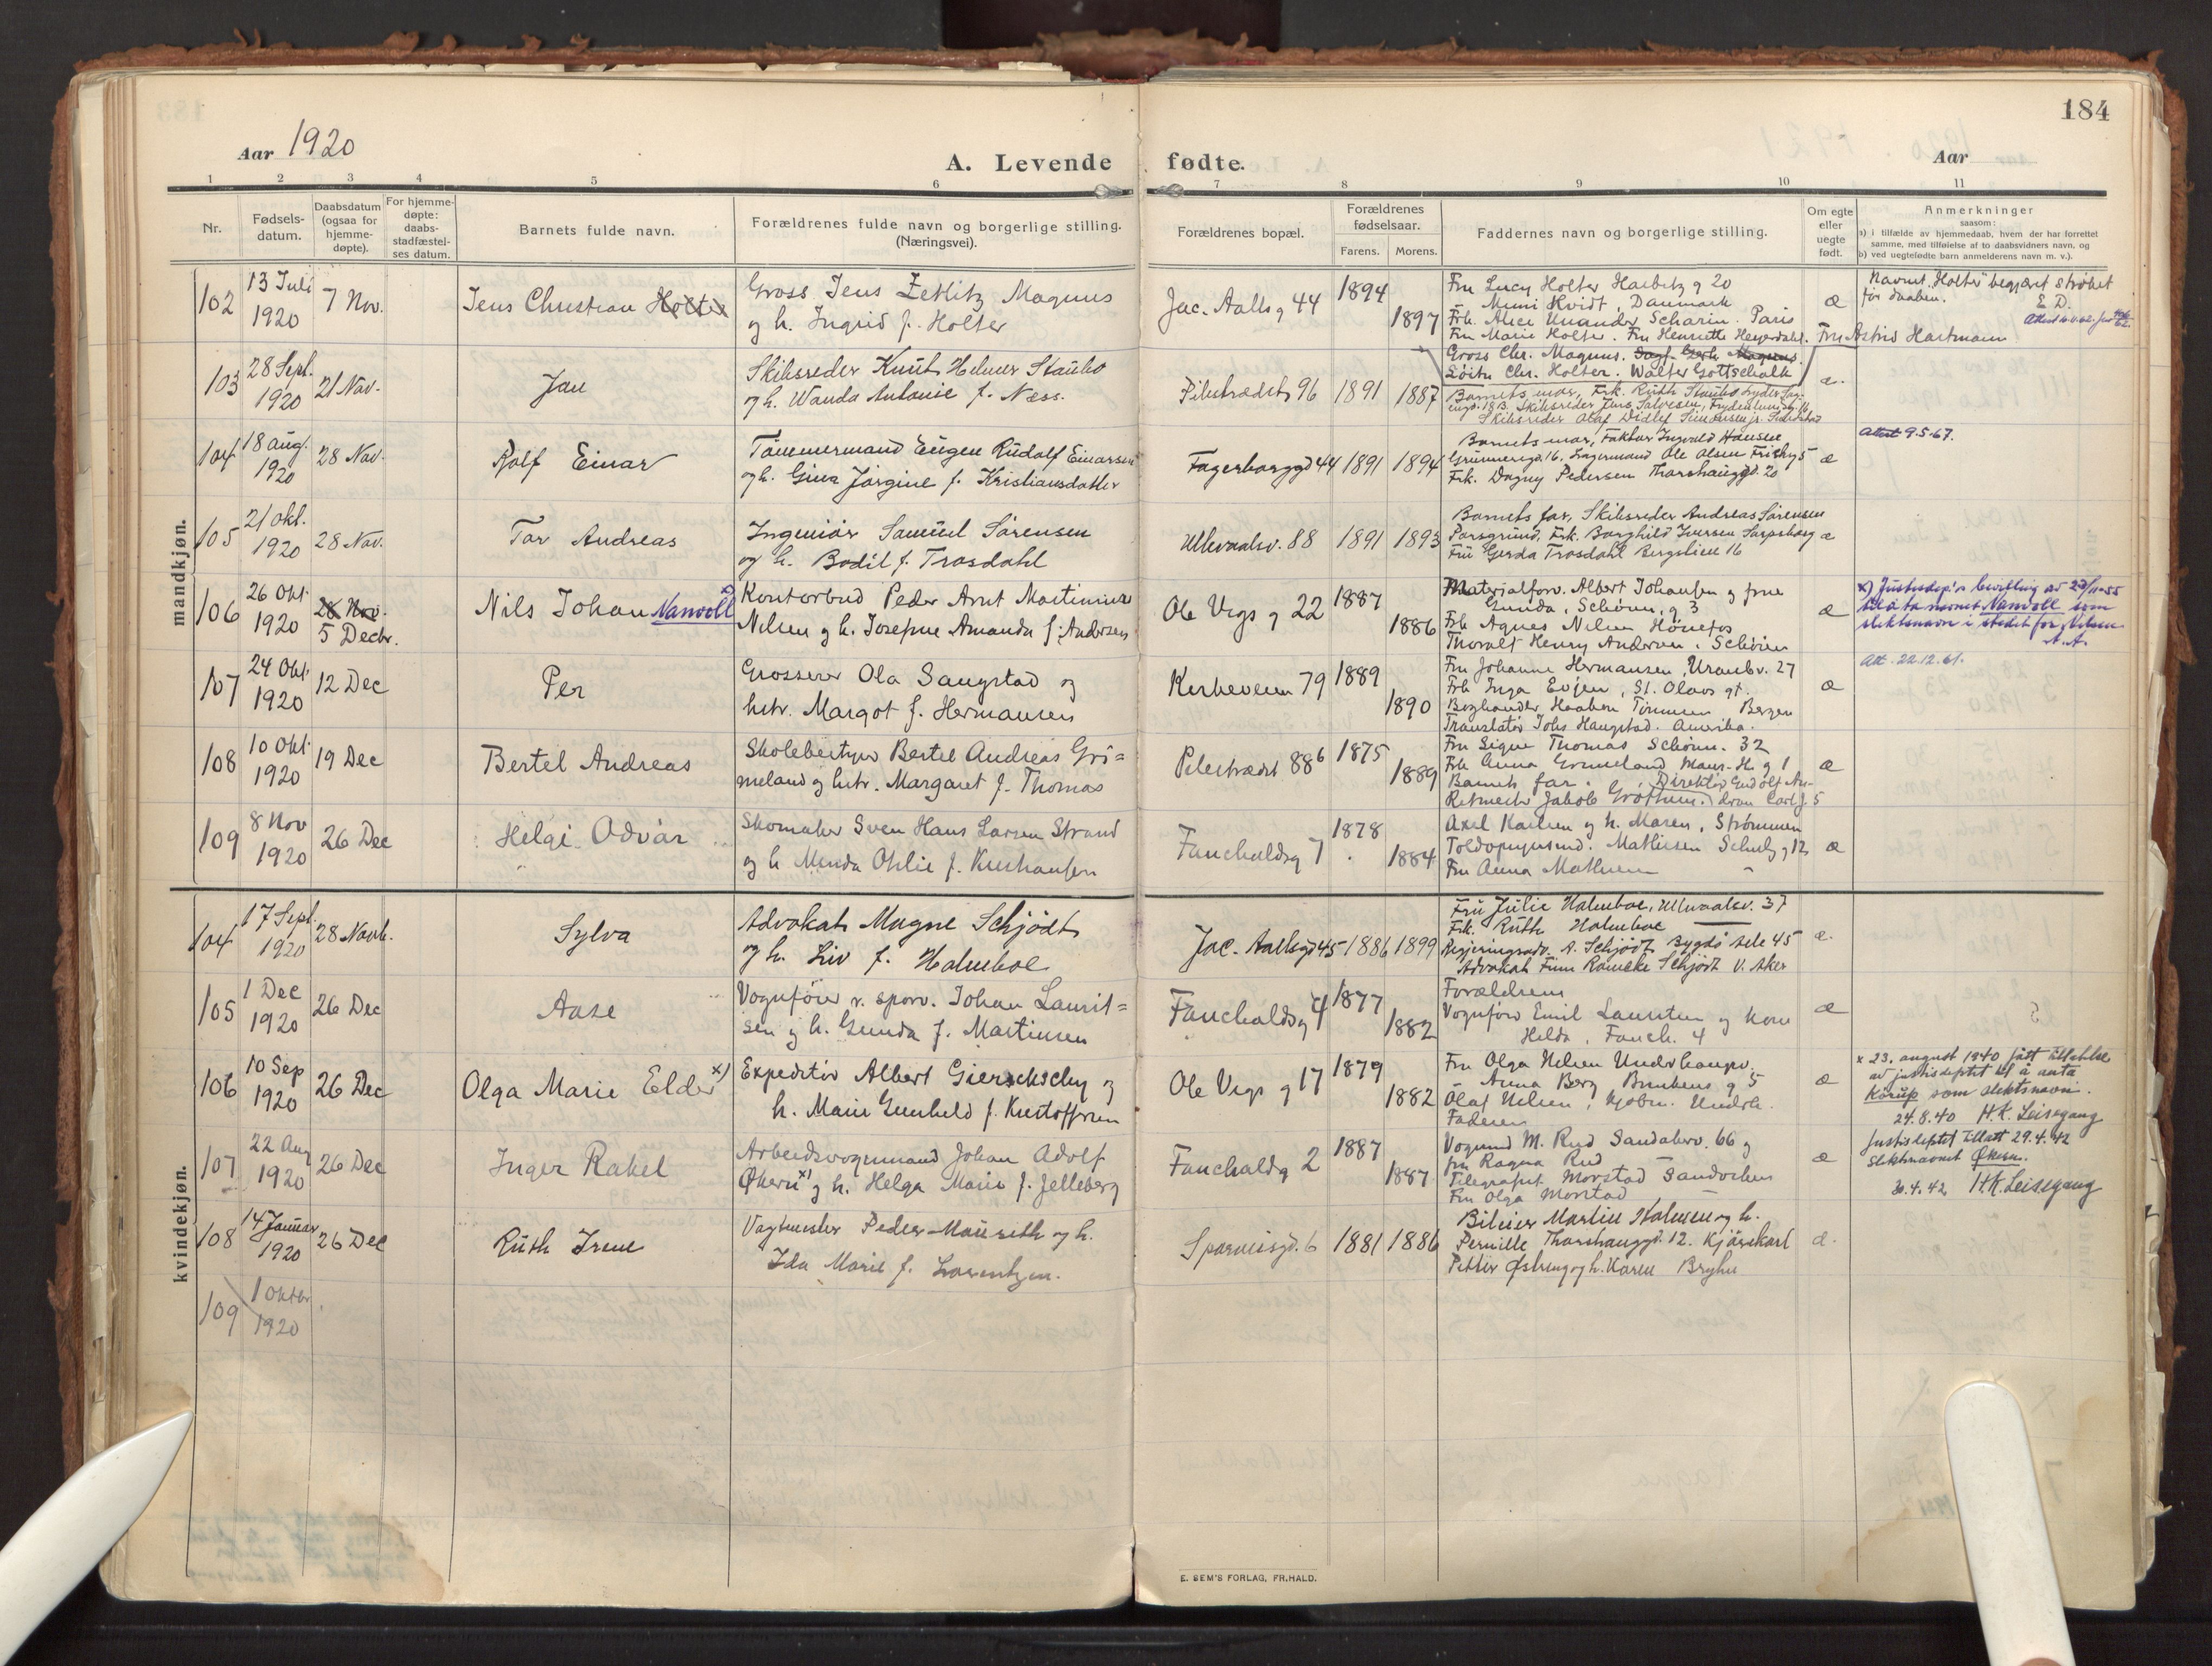 184
Aar 1920
A. Levende fødte.
Aar
1 2 3 4 5 6 7 8 9 10 11
Nr.
Fødsels-
datum.
Daabsdatum
(ogsaa for
hjemme-
døpte).
For hjemme-
døpte:
daabs-
stadfæstel-
ses datum.
Barnets fulde navn.
Forældrenes fulde navn og borgerlige stilling.
(Næringsvei).
Forældrenes bopæl.
Forældrenes
fødselsaar.
Farens. Morens.
Faddernes navn og borgerlige stilling.
Om egte
eller
uegte
født.
Anmerkninger
saasom:
a) i tilfælde av hjemmedaab, hvem der har forrettet
samme, med tilføielse af to daabsvidners navn, og
b) ved uegtefødte barn anmelderens navn m. v.).
mandkjøn.
102
13 Juli
1920
7 Nov.
Jens Christian Holter
Gross Jens Zetlitz Magnus
og h. Ingrid f. Holter
Jac. Aalls g 44
1894
1897
Fru Lucy Holter Harbitz g 20
Mimi Kvidt, Danmark
Frk. Alice Unander Scharin. Paris
Fru Marie Holter. Fru Henriette Heyerdahl. Fru Astrid Hartmann
Gross Chr. Magnus.
Löitn Chr. Holter. Walter Gottschalk
æ
Navnet "Holter" begjæret strøket
før daaben.
E D.
103
28 Sept.
1920
21 Nov.
Jan
Skibsreder Knut Helmer Staubo
og h. Wanda Antonie f. Næss.
Pilestrædet 96
1891
1887
Barnets mor, Frk. Ruth Staubo
18B. Skibsreder Jens Salvesen,
Skibsreder Olaf Ditlef Simonsen jr. Sandefjord
æ.
104
18 Aug.
1920
28 Nov.
Rolf Einar
Tømmermand Eugen Rudolf Einarsen
og h. Gina Jörgine f. Kristiansdatter
Fagerborggd 44
1891
1894
Barnets mor, Faktor Ingvald Hansen
Grünnersgd. 16, Lagermand Ole Olsen 5
Frk. Dagny Pedersen Thorshauggd. 20
æ
Attest 9.5.67.
105
21 Okt.
1920
28 Nov.
Tor Andreas
Ingeniör Samuel Sörensen
og h. Bodil f. Trosdahl
Ullevaalsv. 88
1891
1893
Barnets far, Skibsreder Andreas Sörensen
Porsgrund, Frk. Borghild Iversen Sarpsborg
Fru Gerda Trosdahl Bergslien 16
æ
106
26 Okt.
1920
28 Nov.
5 Decbr.
Nils Johan Nanvoll x)
Kontorbud Peder Arnt Martinius
Nilsen og h. Josefine Amanda f. Andersen
Ole Vigs g 22
1887
1886
Materialforv. Albert Johansen og frue
Gunda, Schønn. g 3
Frk Agnes Nilsen Hönefos
Thoralf Henry Andersen. Schönn
æ
x) Justisdep's bevilling av 23/11-55
til å ta navnet Nanvoll som
slektsnavn i stedet for Nilsen
A.A.
107
24 Okt.
1920
12 Dec
Per
Grosserer Ola Sangstad og
hstr. Margot f. Hermansen
Kirkeveien 79
1889
1890
Fru Johanne Hermansen, 27
Frk Inga Evjen, St. Olavs gt.
Boghandler Haakon Tönnesen Bergen
Translatör Johs Haugstad. Amerika.
æ
Att. 22.12.61.
108
10 Okt.
1920
19 Dec
Bertel Andreas
Skolebestyrer Bertel Andreas Gri=
meland og hstr. Margaret f. Thomas
Pilestrædet 88 b
1875
1889
Fru Signe Thomas Schönn. 32
Frk Anna Grimeland g 1
Barnets far. Direktör
Retmester Jakob Grøttum. 5
æ
109
8 Nov
1920
26 Dec
Helgi Odvar
Skomaker Sven Hans Larsen Strand
og h Minda Othlie f. Knuthansen
Fauchaldsg 7
1878
1884
Axel Karlsen og h. Maren, Strømmen
Toldopsynsmd. Mathisen Schultz g 12
Fru Anna Mathisen "
æ
kvindekjøn.
104
17 Sept.
1920
28 Novb.
Sylva
Advokat Magne Schjödt
og h. Liv f. Holmboe.
Jac. Aallsgd 45
1886
1899
Fru Julie Holmboe, Ullevaalsv. 37
Frk. Ruth Holmboe
Regjeringsadv. A. Schjödt Bygdö Allé 45
Advokat Finn Rameke Schjödt V. Aker
æ.
105
1 Dec
1920
26 Dec
Aase
Vognförer v. sporv. Johan Laurit=
sen og h. Gunda f. Martinsen
Fauchaldsg 4
1877
1882
Forældrene
Vognförer Emil Lauritsen og kone
Hilda, Fauch. 4
æ
106
10 Sep
1920
26 Dec
Olga Marie Elder x)
Expeditör Albert Gierschsky og
h. Marie Gunhild f. Kristoffersen
Ole Vigs g 17
1879
1882
Fru Olga Nilsen Underhaugsv.
Anna Berg g 5
Olaf Nilsen, Kjøbm. Underh.
Faderen
æ
x 23. august 1940 fått tillatelse
av justisdeptet til å anta
Kårup som slektsnavn.
24.8.40 H.K. Leisegang
107
22 Aug
1920
26 Dec
Inger Rakel
Arbeidsvognmand Johan Adolf
Økern x) og h. Helga Marie f. Jelleberg
Fauchaldg 2
1887
1887
Vognmd M. Rud Sandakerv. 66 og
fru Ragna Rud
Telegrafist Morstad Sandviken
Fru Olga Morstad "
æ
Justisdeptet tillatt 29.4.42
slektsnavnet Økern.
30.4.42 H.K. Leisegang
108
14 Januar
1920
26 Dec
Ruth Irene
Vagtmester Peder Mauseth og h.
Ida Marie f. Lorentzen.
Sporveisgd. 6
1881
1886
Bileier Martin Holmsen og h.
Pernille Thorshauggd. 12. Kjörekarl
Petter Østreng og h. Karen Bryhn
æ.
109
1 Oktbr
1920
E. SEM'S FORLAG, FR.HALD.